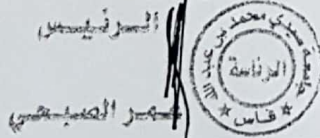 الرئيس
عمر الصبحي
جامعة سيدي محمد بن عبد الله
الرئاسة
فاس